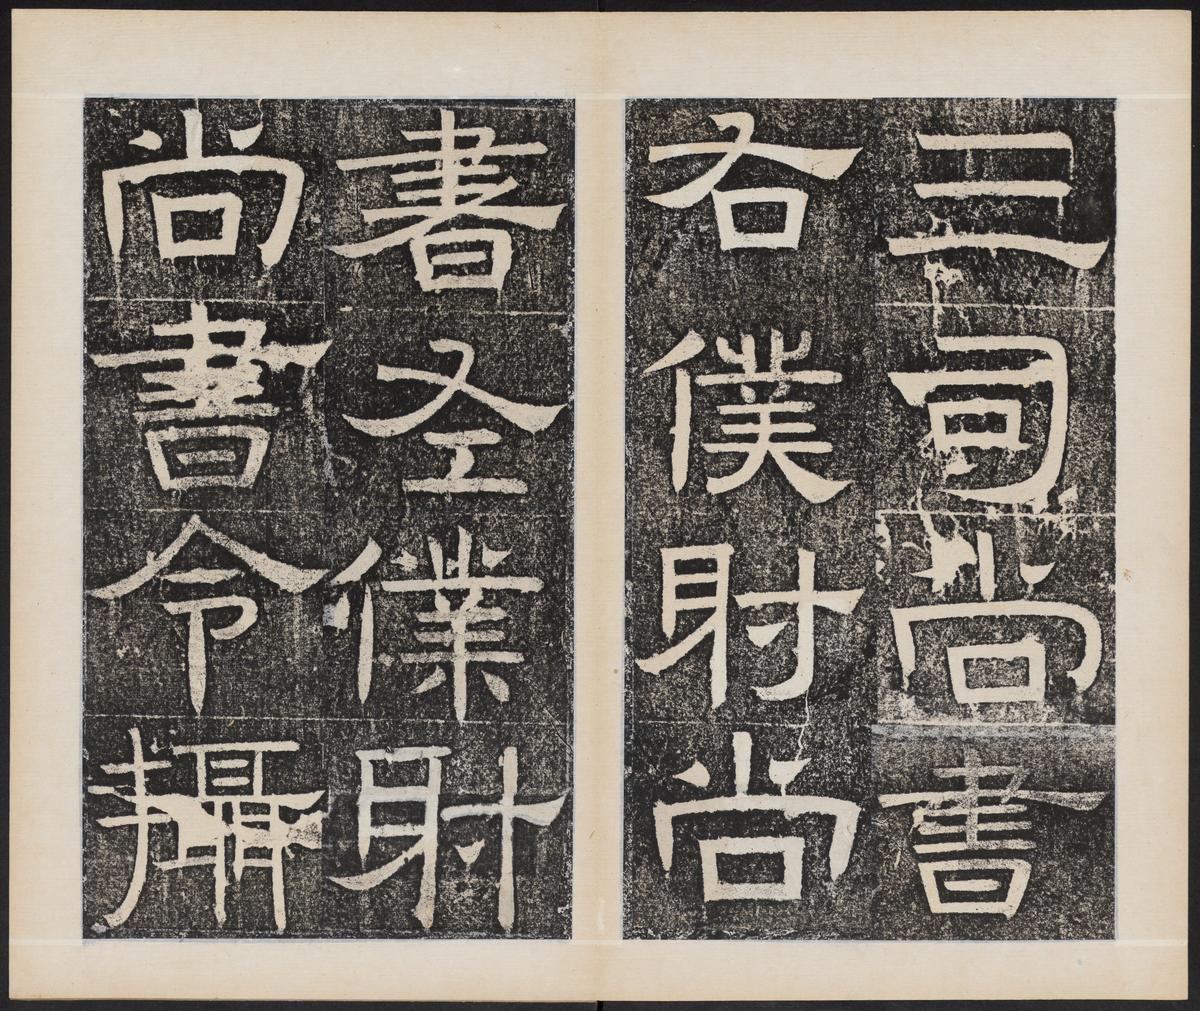 三司尚書
右僕射尚
書左僕射
尚書令攝